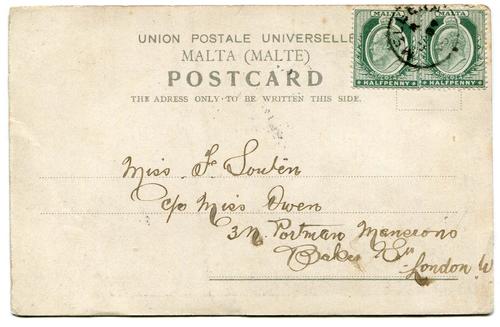 UNION POSTALE UNIVERSELLE
MALTA (MALTE)
POSTCARD
THE ADRESS ONLY TO BE WRITTEN THIS SIDE.
MALTA MALTA
HALFPENNY HALFPENNY
Miss F. Louten
c/o Miss Owen
3 N. Portman Mansions
Baker St
London W